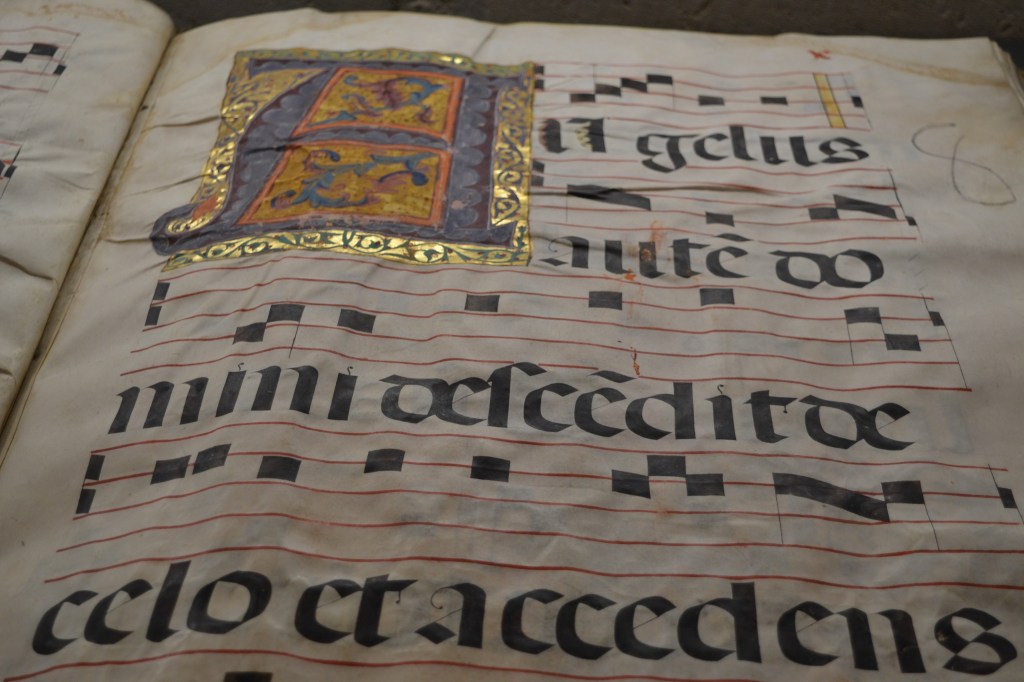 ANgelus
8
autē do
mini descēdit de
celo et accedens